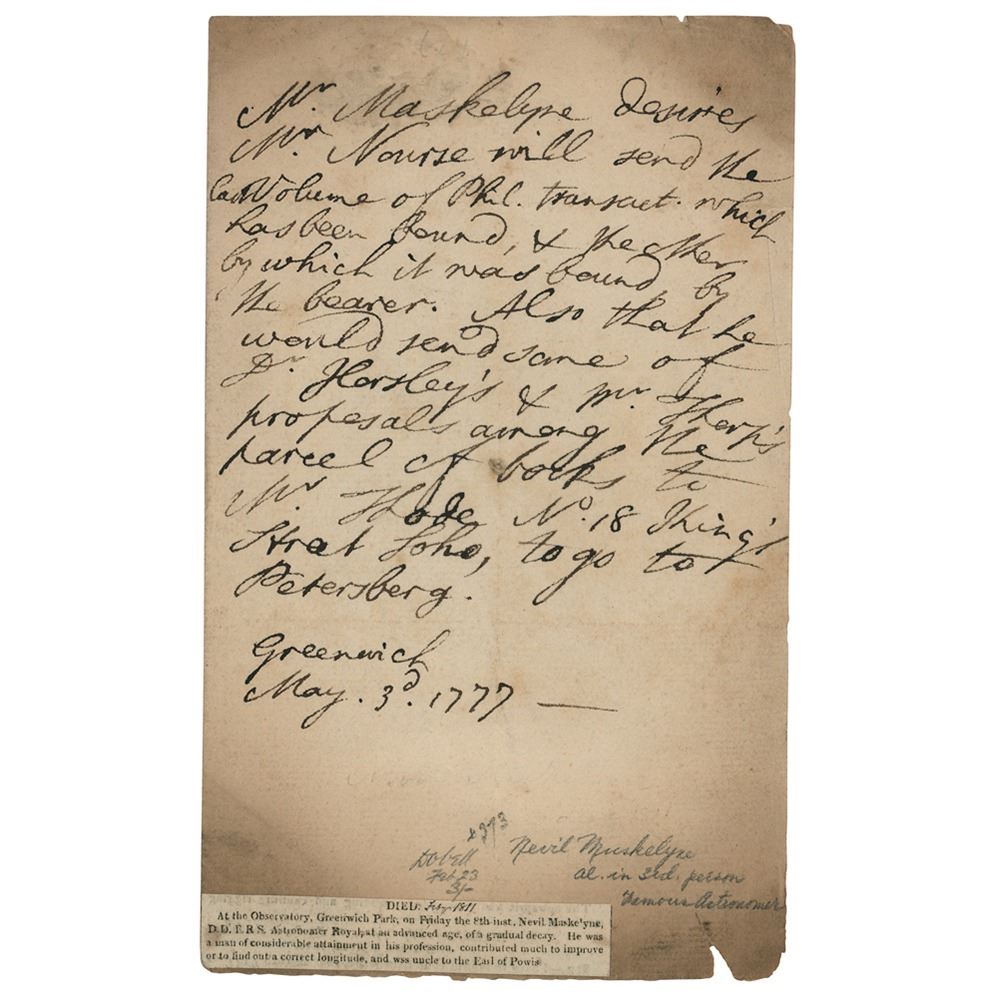 Mr. Maskelyne desires
Mr. Nourse will send the
last Volume of Phil. transact. which
has been bound, & the other
by which it was bound by
the bearer. Also that he
would send some of
Dr. Horsley's & Mr.
proposals among the
parcel of books to
Mr. No. 18
Street Soho, to go to
Petersberg.
Greenwich
May. 3d. 1777 —
x 373
Dobell
Feb 23
3/-
Nevil Muskelyne
al. in 3rd. person
Famous Astronomer
DIED. Feby 1811
At the Observatory, Greenwich Park, on Friday the 8th inst. Nevil Maskelyne,
D.D. F.R S. Astronomer Royal, at an advanced age, of a gradual decay. He was
a man of considerable attainment in his profession, contributed much to improve
or to find out a correct longitude, and was uncle to the Earl of Powis